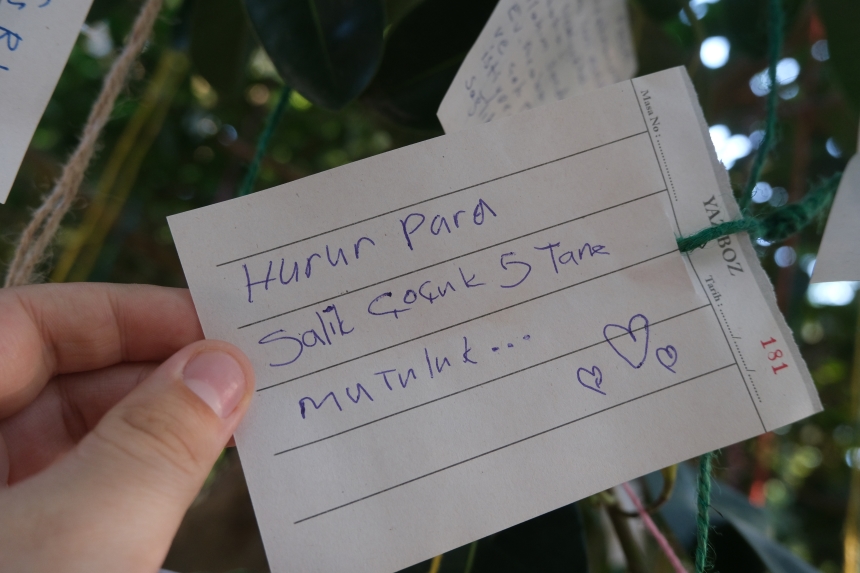 Hurur Para
Salik Çoçuk 5 Tane
mutuluk...
Masa No :
YAZBOZ
Tarih : ...../...../.....
181